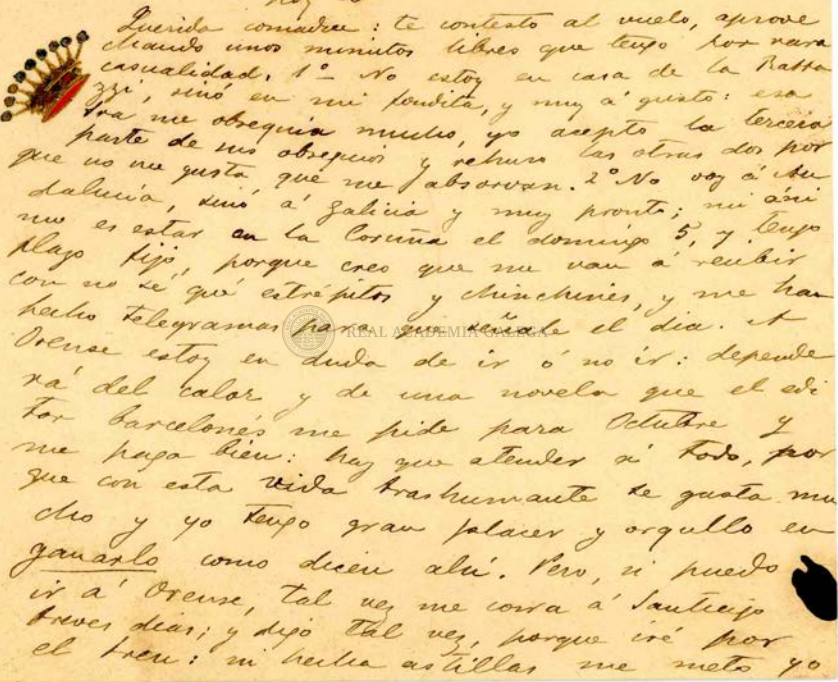 Querida comadre: te contesto al vuelo, aprove
chando unos minutos libres que tengo por rara
casualidad. 1º No estoy en casa de la Ratta
zzi, sinó en mi fondita, y muy á gusto: eso
tra me obsequia mucho, yo acepto la tercera
parte de sus obsequios y rehuso las otras dos por
que no me gusta que me absorvan. 2º No voy á An
dalucía, sinó á Galicia y muy pronto; mi áni
mo es estar en la Coruña el domingo 5, y tengo
plazo fijo, porque creo que me van á recibir
con no sé qué estrépitos y chinchines, y me han
hecho telegramas para que señale el dia. A
REAL ACADEMIA GALEGA
Orense estoy en duda de ir ó no ir: depende
rá del calor y de una novela que el edi
tor barcelonés me pide para Octubre y
me paga bien: hay que atender á todo, por
que con esta vida trashumante se gasta mu
cho y yo tengo gran placer y orgullo en
ganarlo como dicen ahí. Pero, si puedo
ir á Orense, tal vez me corra á Santiago
breves dias; y digo tal vez, porque iré por
el tren: ni hecha astillas me meto yo